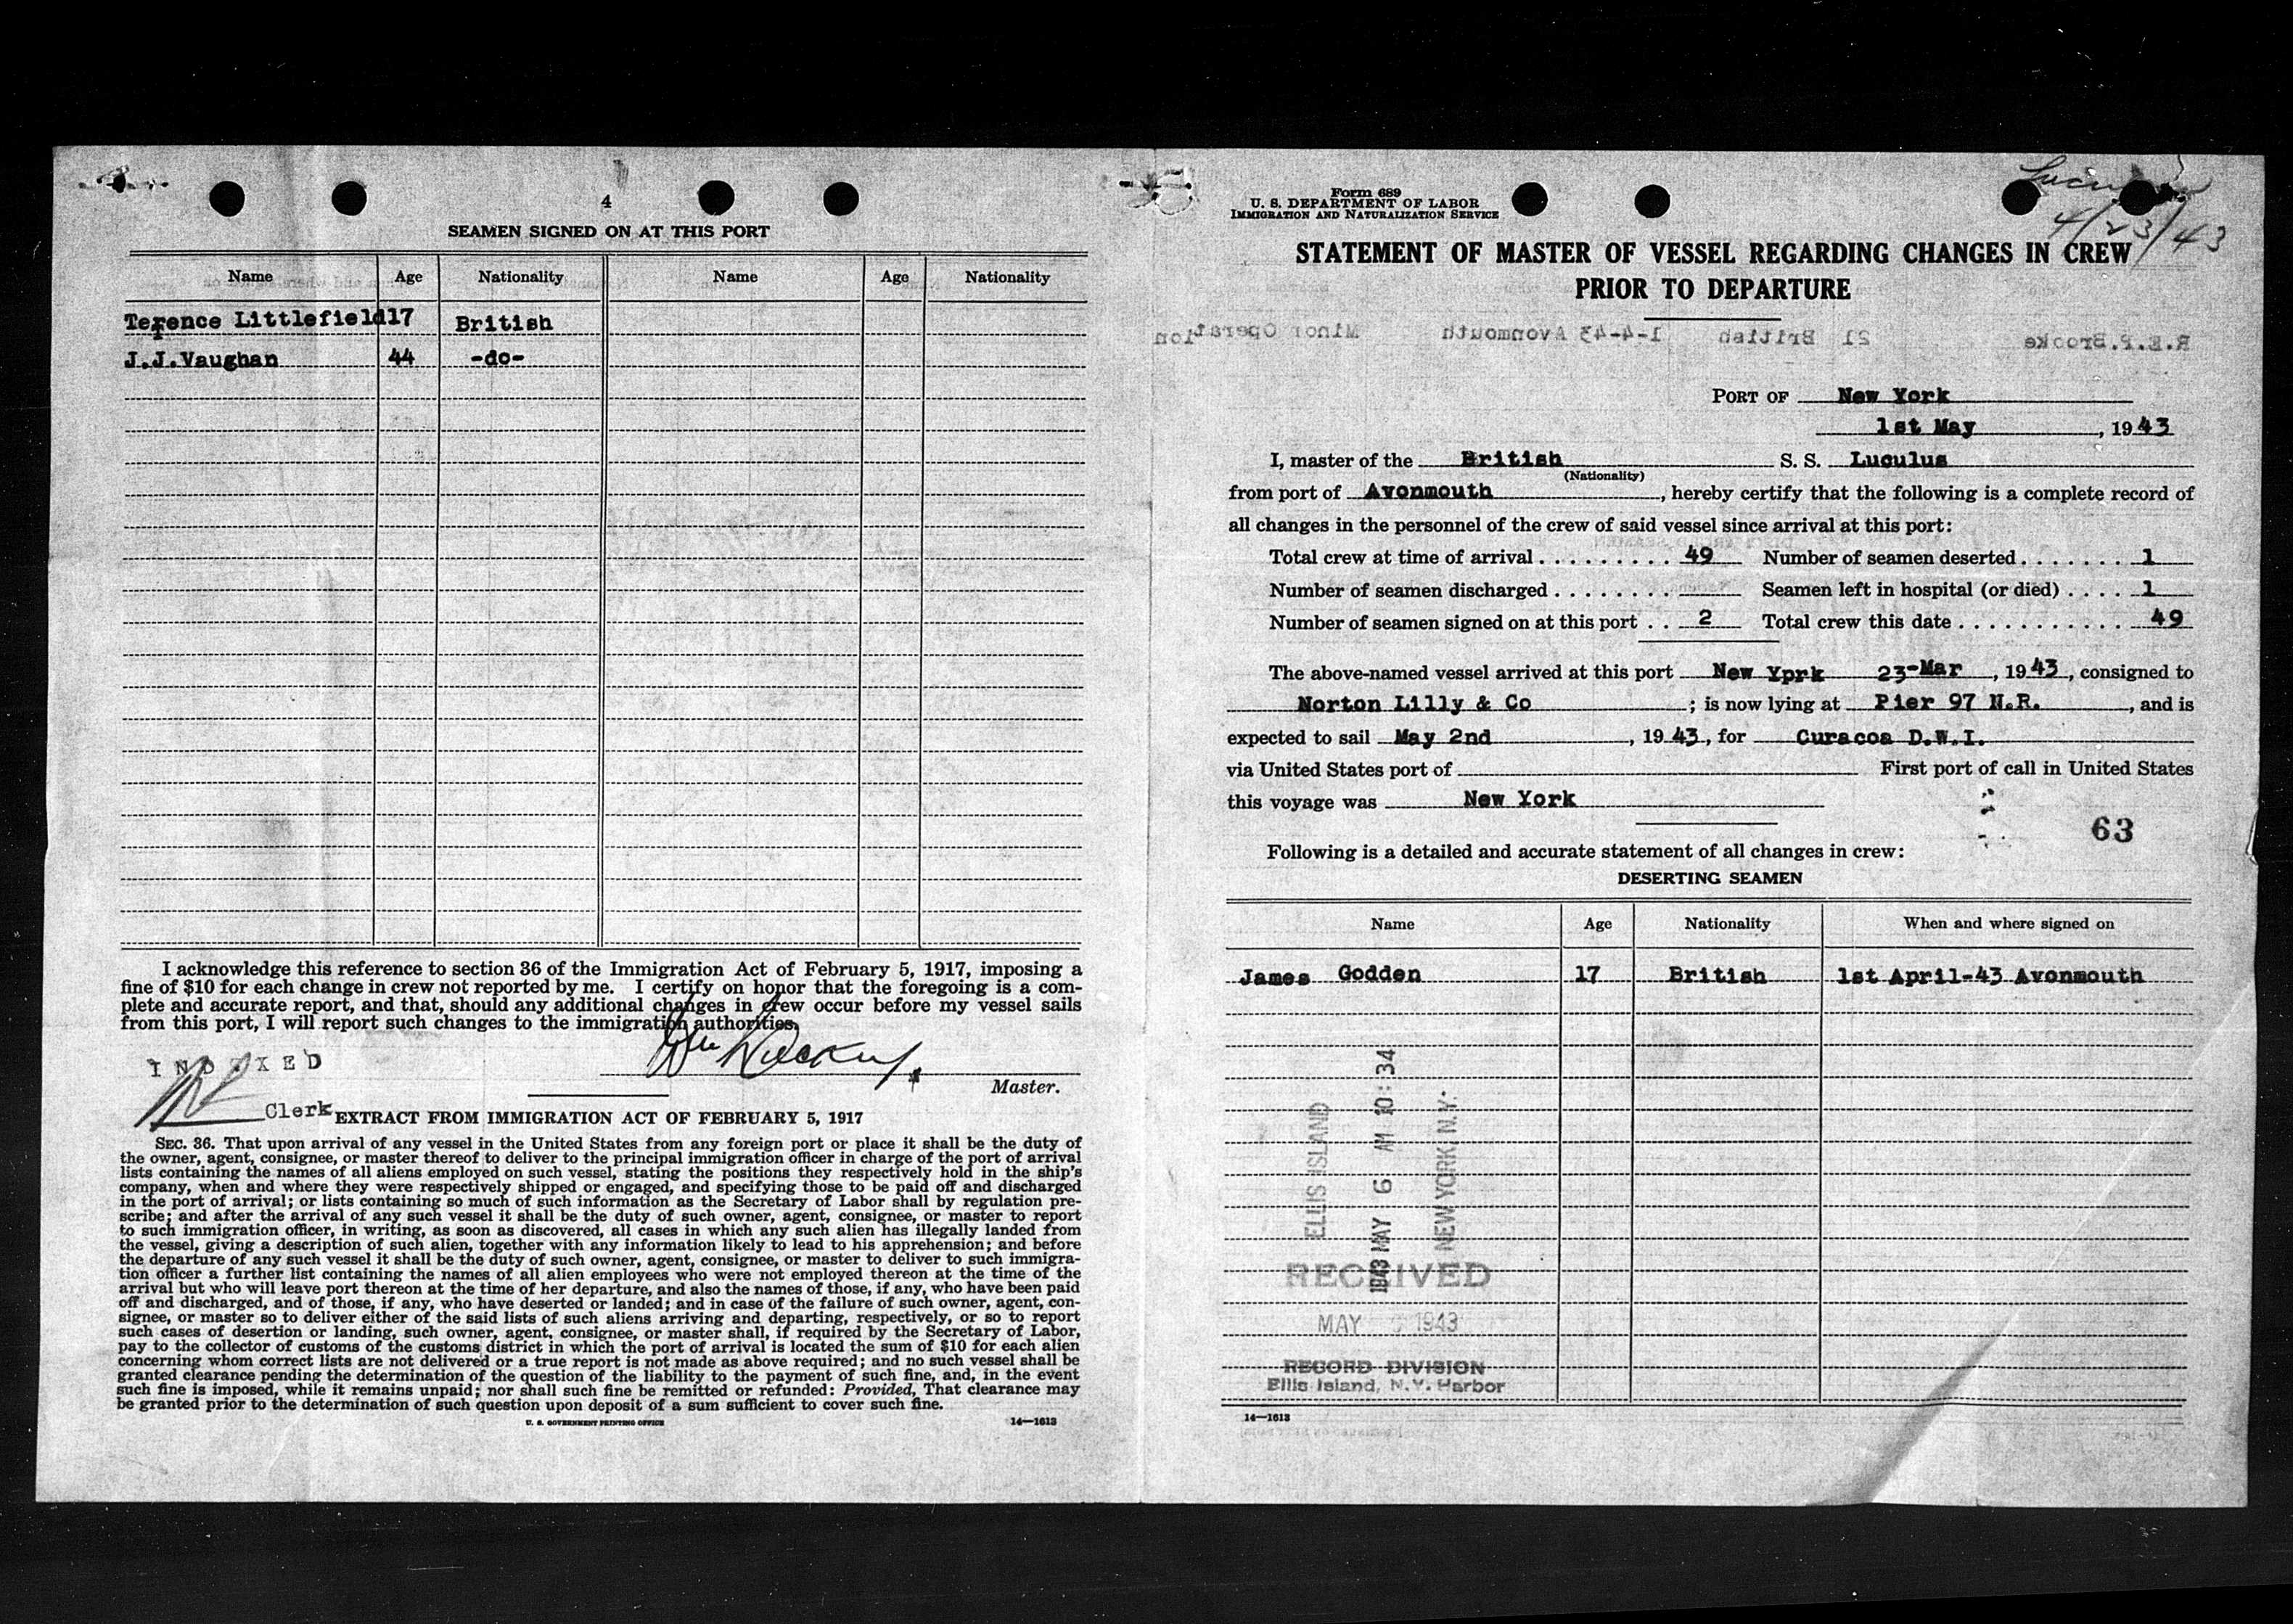 4
SEAMEN SIGNED ON AT THIS PORT
Name Age Nationality Name Age Nationality
Terence Littlefield 17 British
J.J.Vaughan 44 -do-
I acknowledge this reference to section 36 of the Immigration Act of February 5, 1917, imposing a
fine of $10 for each change in crew not reported by me. I certify on honor that the foregoing is a com-
plete and accurate report, and that, should any additional changes in crew occur before my vessel sails
from this port, I will report such changes to the immigration authorities.
Master.
INDEXED
Clerk
EXTRACT FROM IMMIGRATION ACT OF FEBRUARY 5, 1917
SEC. 36. That upon arrival of any vessel in the United States from any foreign port or place it shall be the duty of
the owner, agent, consignee, or master thereof to deliver to the principal immigration officer in charge of the port of arrival
lists containing the names of all aliens employed on such vessel, stating the positions they respectively hold in the ship's
company, when and where they were respectively shipped or engaged, and specifying those to be paid off and discharged
in the port of arrival; or lists containing so much of such information as the Secretary of Labor shall by regulation pre-
scribe; and after the arrival of any such vessel it shall be the duty of such owner, agent, consignee, or master to report
to such immigration officer, in writing, as soon as discovered, all cases in which any such alien has illegally landed from
the vessel, giving a description of such alien, together with any information likely to lead to his apprehension; and before
the departure of any such vessel it shall be the duty of such owner, agent, consignee, or master to deliver to such immigra-
tion officer a further list containing the names of all alien employees who were not employed thereon at the time of the
arrival but who will leave port thereon at the time of her departure, and also the names of those, if any, who have been paid
off and discharged, and of those, if any, who have deserted or landed; and in case of the failure of such owner, agent, con-
signee, or master so to deliver either of the said lists of such aliens arriving and departing, respectively, or so to report
such cases of desertion or landing, such owner, agent, consignee, or master shall, if required by the Secretary of Labor,
pay to the collector of customs of the customs district in which the port of arrival is located the sum of $10 for each alien
concerning whom correct lists are not delivered or a true report is not made as above required; and no such vessel shall be
granted clearance pending the determination of the question of the liability to the payment of such fine, and, in the event
such fine is imposed, while it remains unpaid; nor shall such fine be remitted or refunded: Provided, That clearance may
be granted prior to the determination of such question upon deposit of a sum sufficient to cover such fine.
U. S. GOVERNMENT PRINTING OFFICE 14—1613
Form 689
U. S. DEPARTMENT OF LABOR
IMMIGRATION AND NATURALIZATION SERVICE
4/23/43
STATEMENT OF MASTER OF VESSEL REGARDING CHANGES IN CREW
PRIOR TO DEPARTURE
R.E.P.Brooke 21 British 1-4-43 Avonmouth Minor Operation
PORT OF New York
1st May, 1943
I, master of the British S. S. Luculus
(Nationality)
from port of Avonmouth, hereby certify that the following is a complete record of
all changes in the personnel of the crew of said vessel since arrival at this port:
Total crew at time of arrival . . . . . . . . . 49 Number of seamen deserted . . . . . . . 1
Number of seamen discharged . . . . . . . . Seamen left in hospital (or died) . . . . 1
Number of seamen signed on at this port . . 2 Total crew this date . . . . . . . . . . . . 49
The above-named vessel arrived at this port New Yprk 23-Mar, 1943, consigned to
Norton Lilly & Co; is now lying at Pier 97 N.R., and is
expected to sail May 2nd, 1943, for Curacoa D.W.I.
via United States port of First port of call in United States
this voyage was New York
63
Following is a detailed and accurate statement of all changes in crew:
DESERTING SEAMEN
Name Age Nationality When and where signed on
James Godden 17 British 1st April-43 Avonmouth
ELLIS ISLAND
1943 MAY 6 AM 10:34
NEW YORK N.Y.
RECEIVED
MAY 1943
RECORD DIVISION
Ellis Island, N.Y. Harbor
14—1613